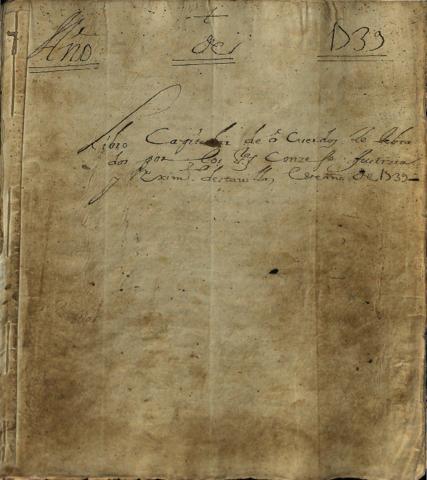 Año de 1739
Libro Capitular de aCuerdos Zelebra
dos por los SS.es Conzejo Justizia
y Reximto. desta villa este año de 1739